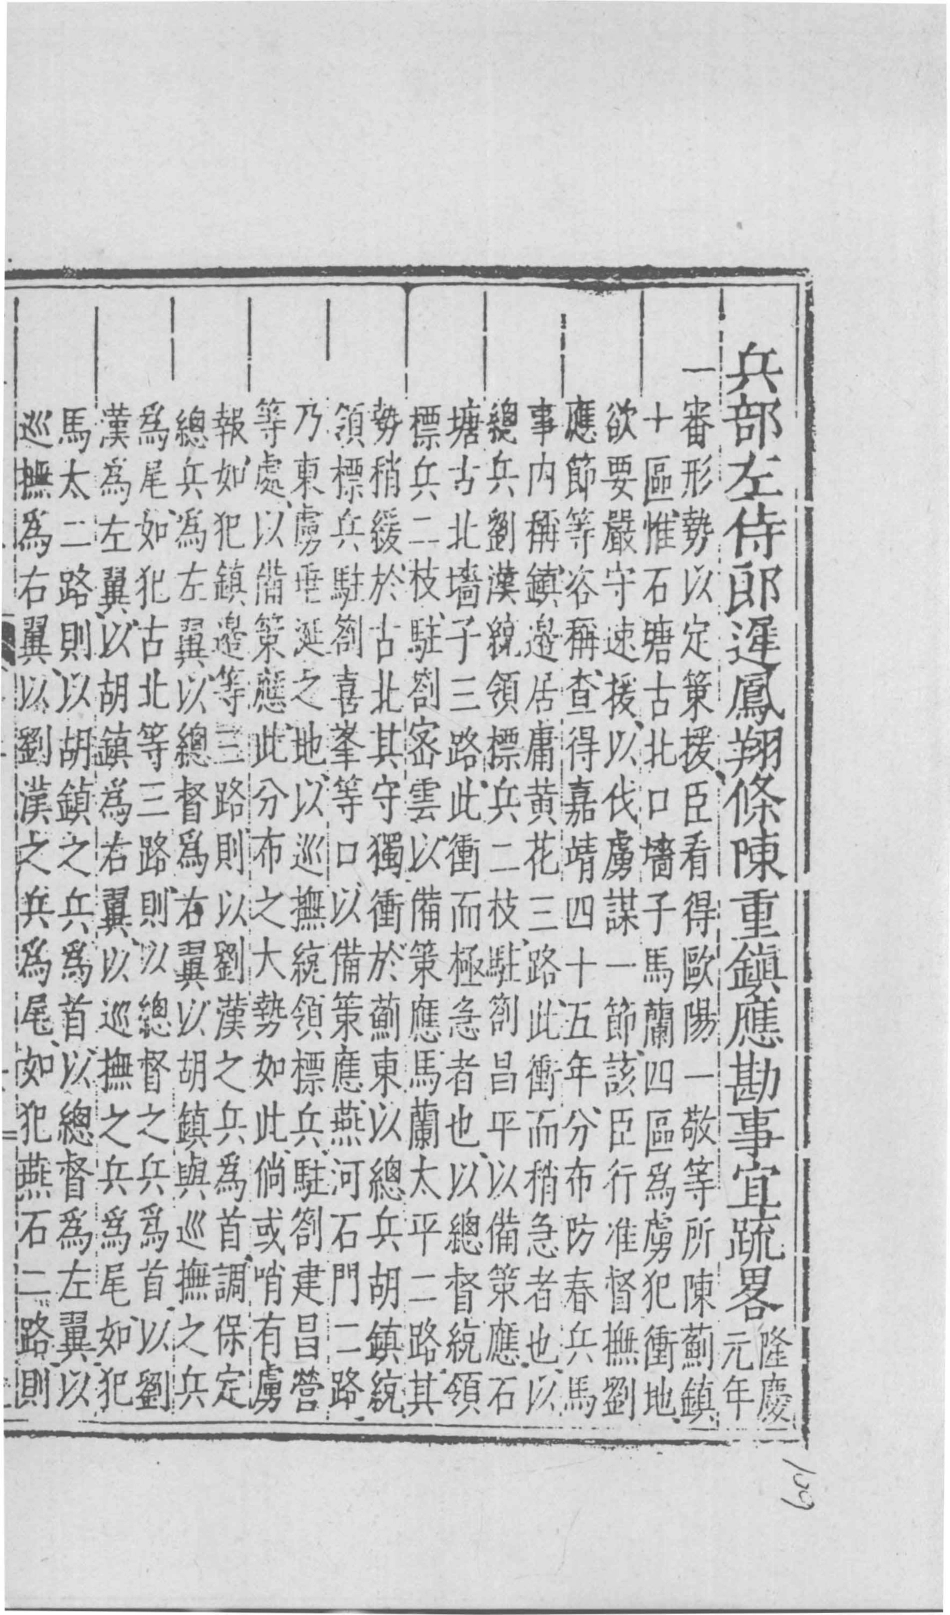 兵部左侍郎遲鳳翔條陳重鎮應勘事宜疏畧隆慶元年
一審形勢以定策援臣看得歐陽一敬等所陳薊鎮
十區惟石塘古北口墻子馬蘭四區爲虜犯衝地
欲要嚴守速援以伐虜謀一節該臣行准督撫劉
應節等咨稱查得嘉靖四十五年分布防春兵馬
事內稱鎮邊居庸黄花三路此衝而稍急者也以
總兵劉漢統領標兵二枝駐劄昌平以備策應石
塘古北墻子三路此衝而極急者也以總督統領
標兵二枝駐劄密雲以備策應馬蘭太平二路其
勢稍緩於古北其守獨衝於薊東以總兵胡鎮統
領標兵駐劄喜峯等口以備策應燕河石門二路
乃東虜垂涎之地以巡撫統領標兵駐劄建昌營
等處以備策應此分布之大勢如此倘或哨有虜
報如犯鎮邉等三路則以劉漢之兵爲首調保定
總兵爲左翼以總督爲右翼以胡鎮與巡撫之兵
爲尾如犯古北等三路則以總督之兵爲首以劉
漢爲左翼以胡鎮爲右翼以巡撫之兵爲尾如犯
馬太二路則以胡鎮之兵爲首以總督爲左翼以
巡撫爲右翼以劉漢之兵爲尾如犯燕石二路則
109